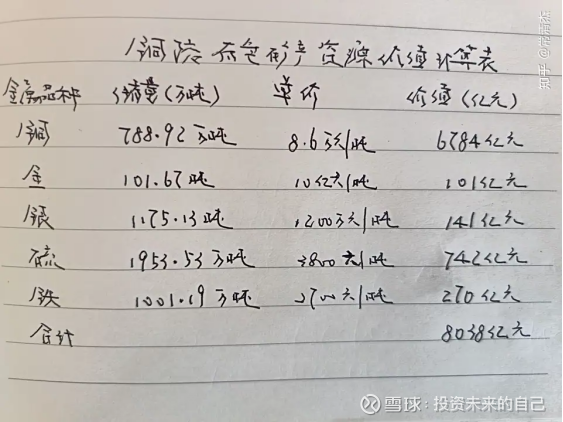 铜陵有色矿产资源价值计算表
金属品种 储量(万吨) 单价 价值(亿元)
铜 788.92万吨 8.6万元/吨 6784亿元
金 101.67吨 10亿元/吨 101亿元
银 1175.13吨 1200万元/吨 141亿元
硫 1953.53万吨 3800元/吨 742亿元
铁 1001.19万吨 2700元/吨 270亿元
合计 8038亿元
知乎
雪球:投资未来的自己